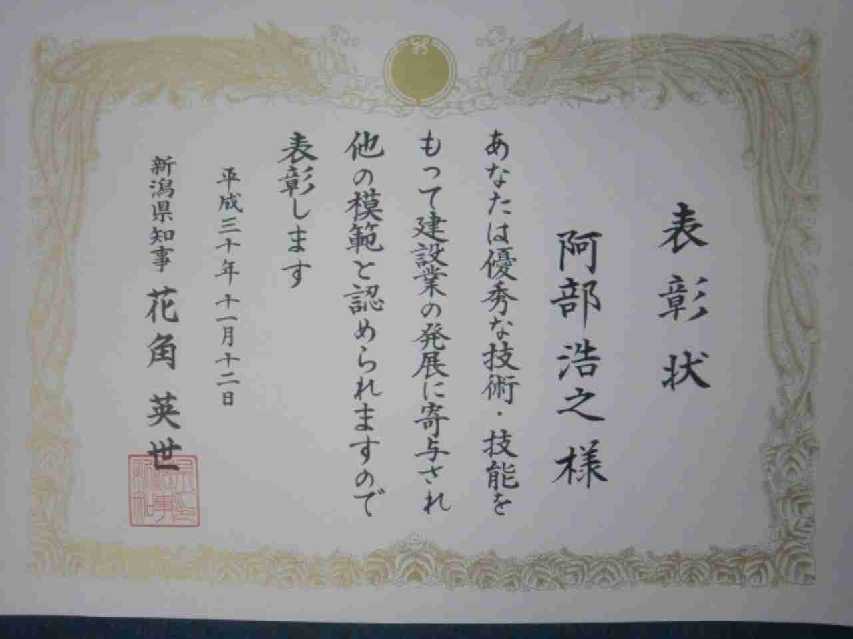 表彰状
阿部浩之様
あなたは優秀な技術・技能を
もって建設業の発展に寄与され
他の模範と認められますので
表彰します
平成三十年十一月十二日
新潟県知事 花角英世